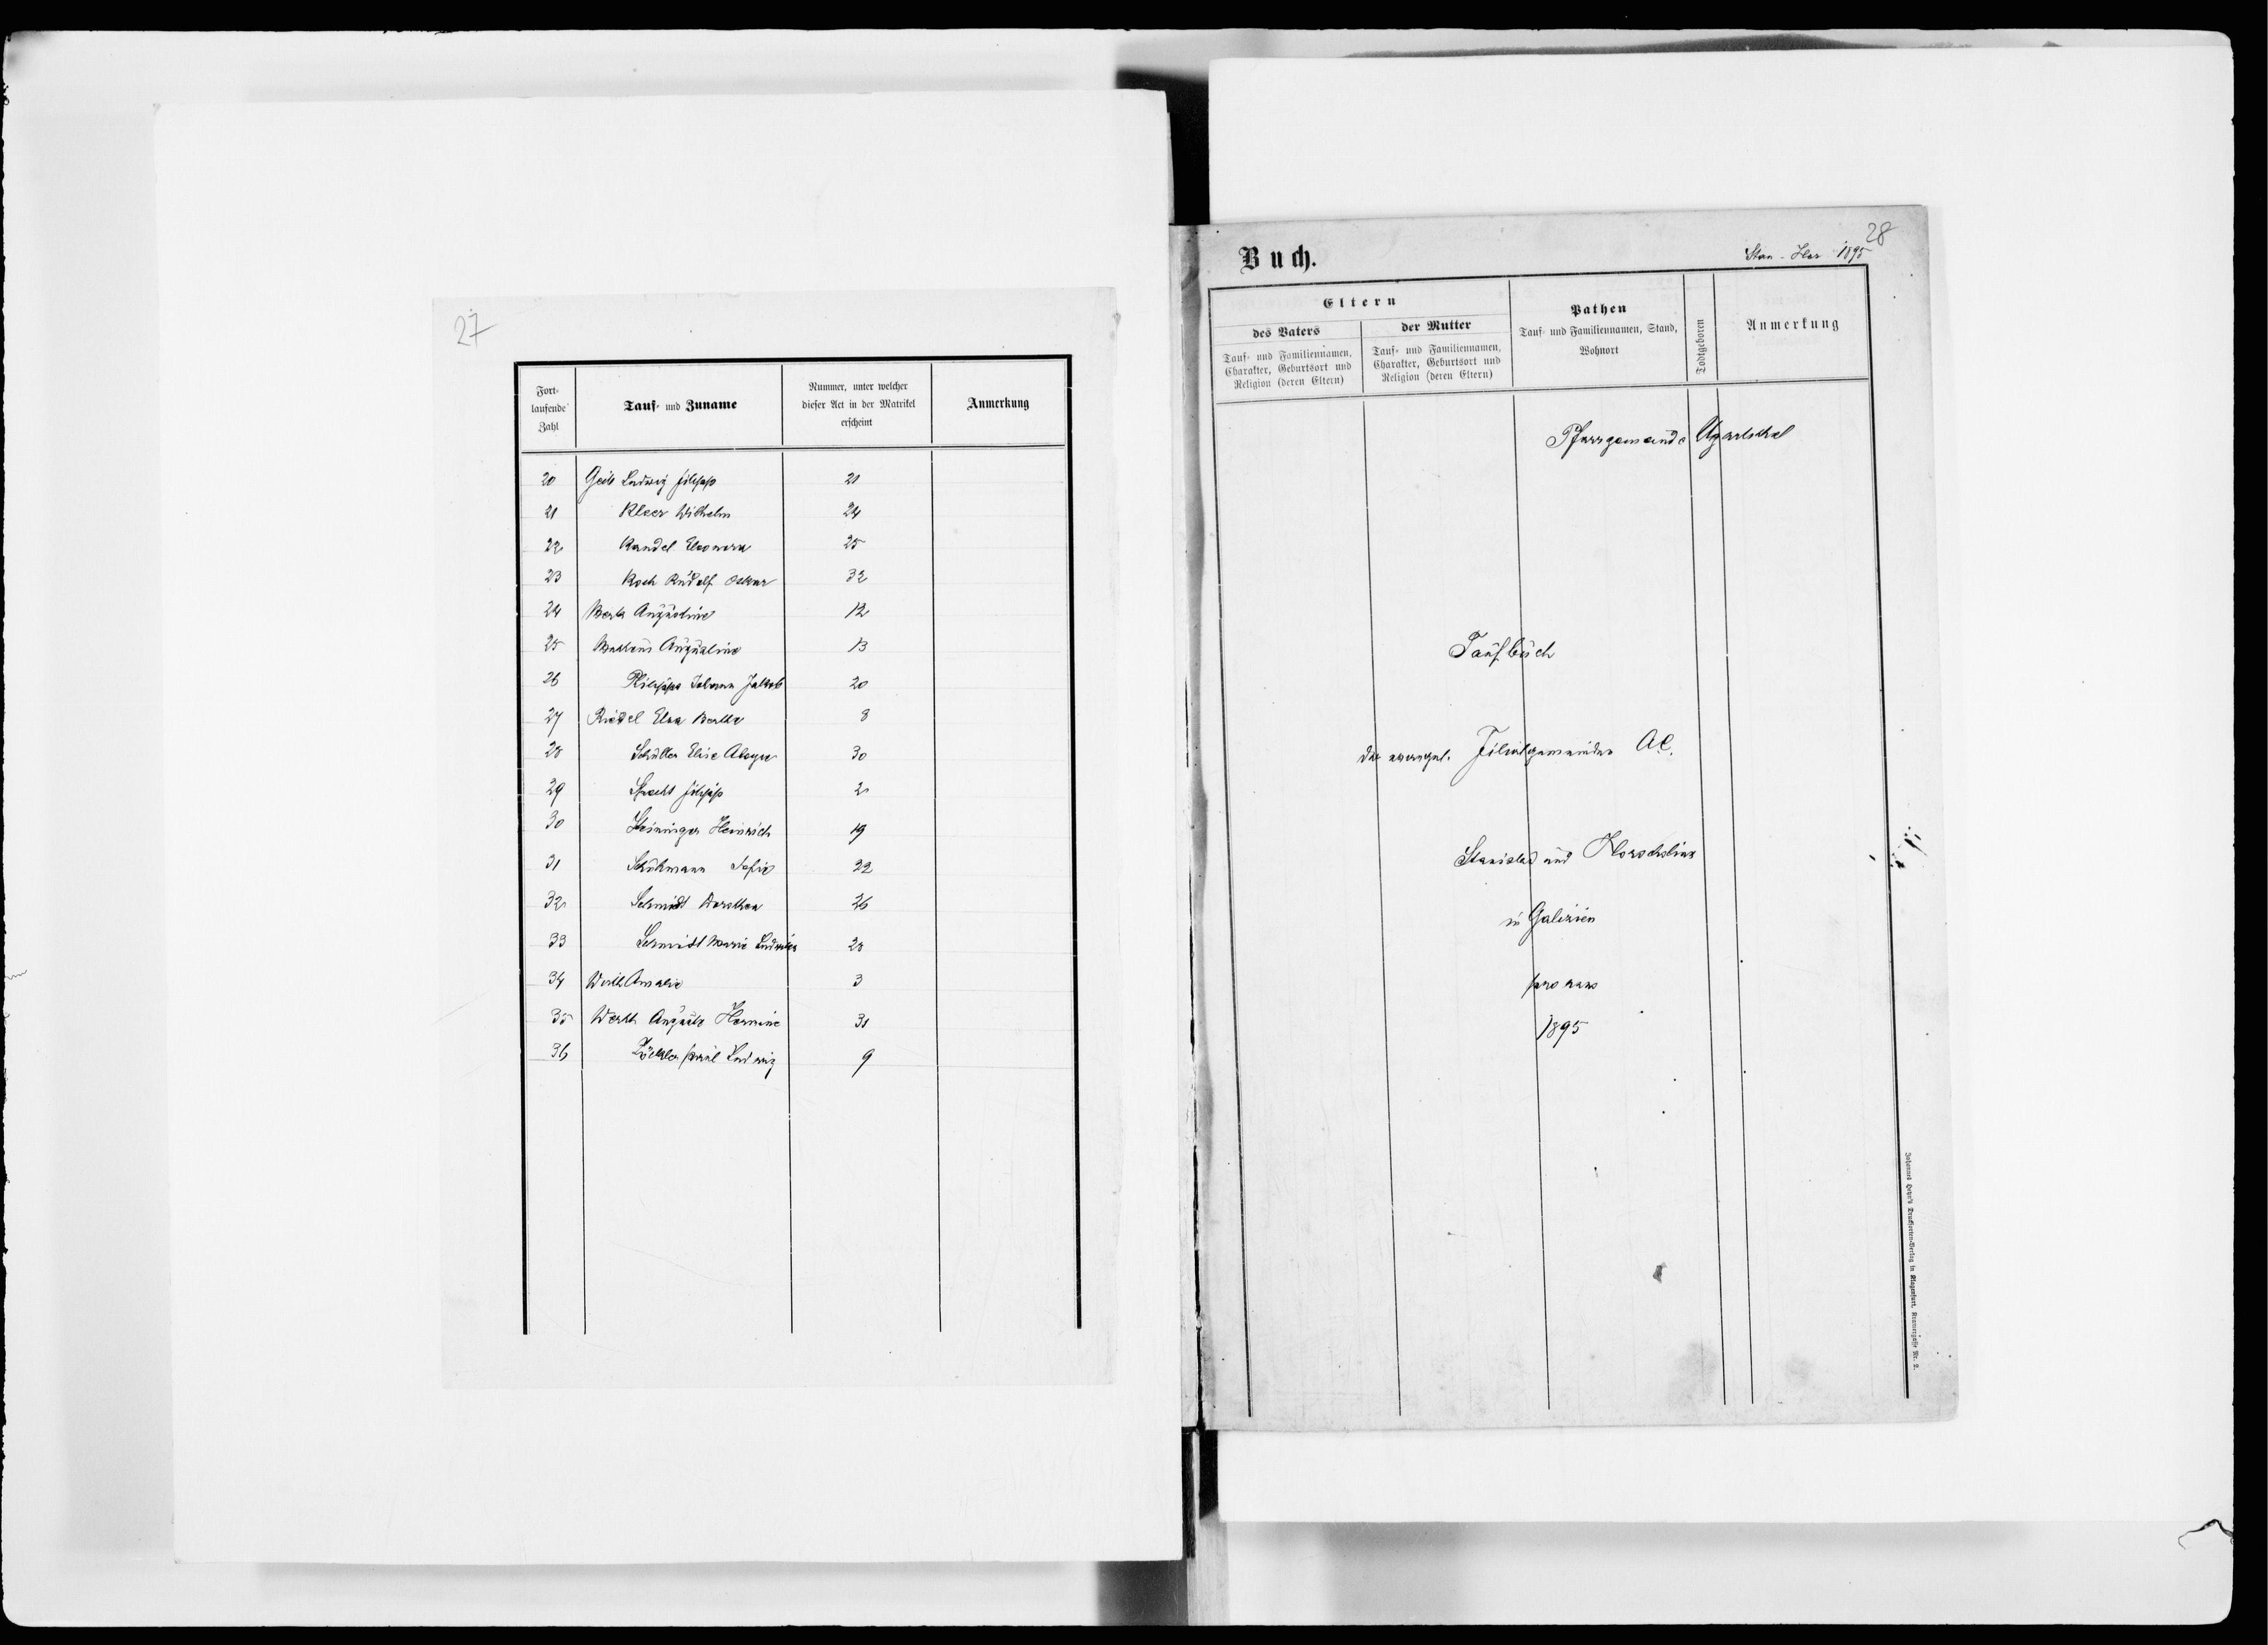 27
Fort-laufende Zahl | Tauf- und Zuname | Nummer, unter welcher dieser Act in der Matrikel erscheint | Anmerkung
20 Geib Ludwig Filipp 21
21 Kleer Wilhelm 24
22 Kandel Eleonora 25
23 Koch Rudolf Oskar 32
24 Augustine 12
25 13
26 Philipps Johann Jakob 20
27 Riedel Elsa Bertha 8
28 Schüller Elise 30
29 Specht Filipp 2
30 Steininger Heinrich 19
31 Schuhmann Sofie 22
32 Schmidt Dorothea 26
33 Schmidt Marie Ludwika 28
34 Wirth Amalie 3
35 Werth Auguste Hermine 31
36 Zöckler Paul Ludwig 9
28
Buch.
Stan - Hor 1895
Eltern
des Vaters
Tauf- und Familiennamen, Charakter, Geburtsort und Religion (deren Eltern)
der Mutter
Tauf- und Familiennamen, Charakter, Geburtsort und Religion (deren Eltern)
Pathen
Tauf- und Familiennamen, Stand, Wohnort
Todtgeboren
Anmerkung
Pfarrgemeinde Ugartsthal
Taufbuch
der evangel. Filialgemeinden A.C.
Stanislau und Horocholina
in Galizien
pro
1895
Johannes Heyn's Drucksorten-Verlag in Klagenfurt, Kramergasse Nr. 2.